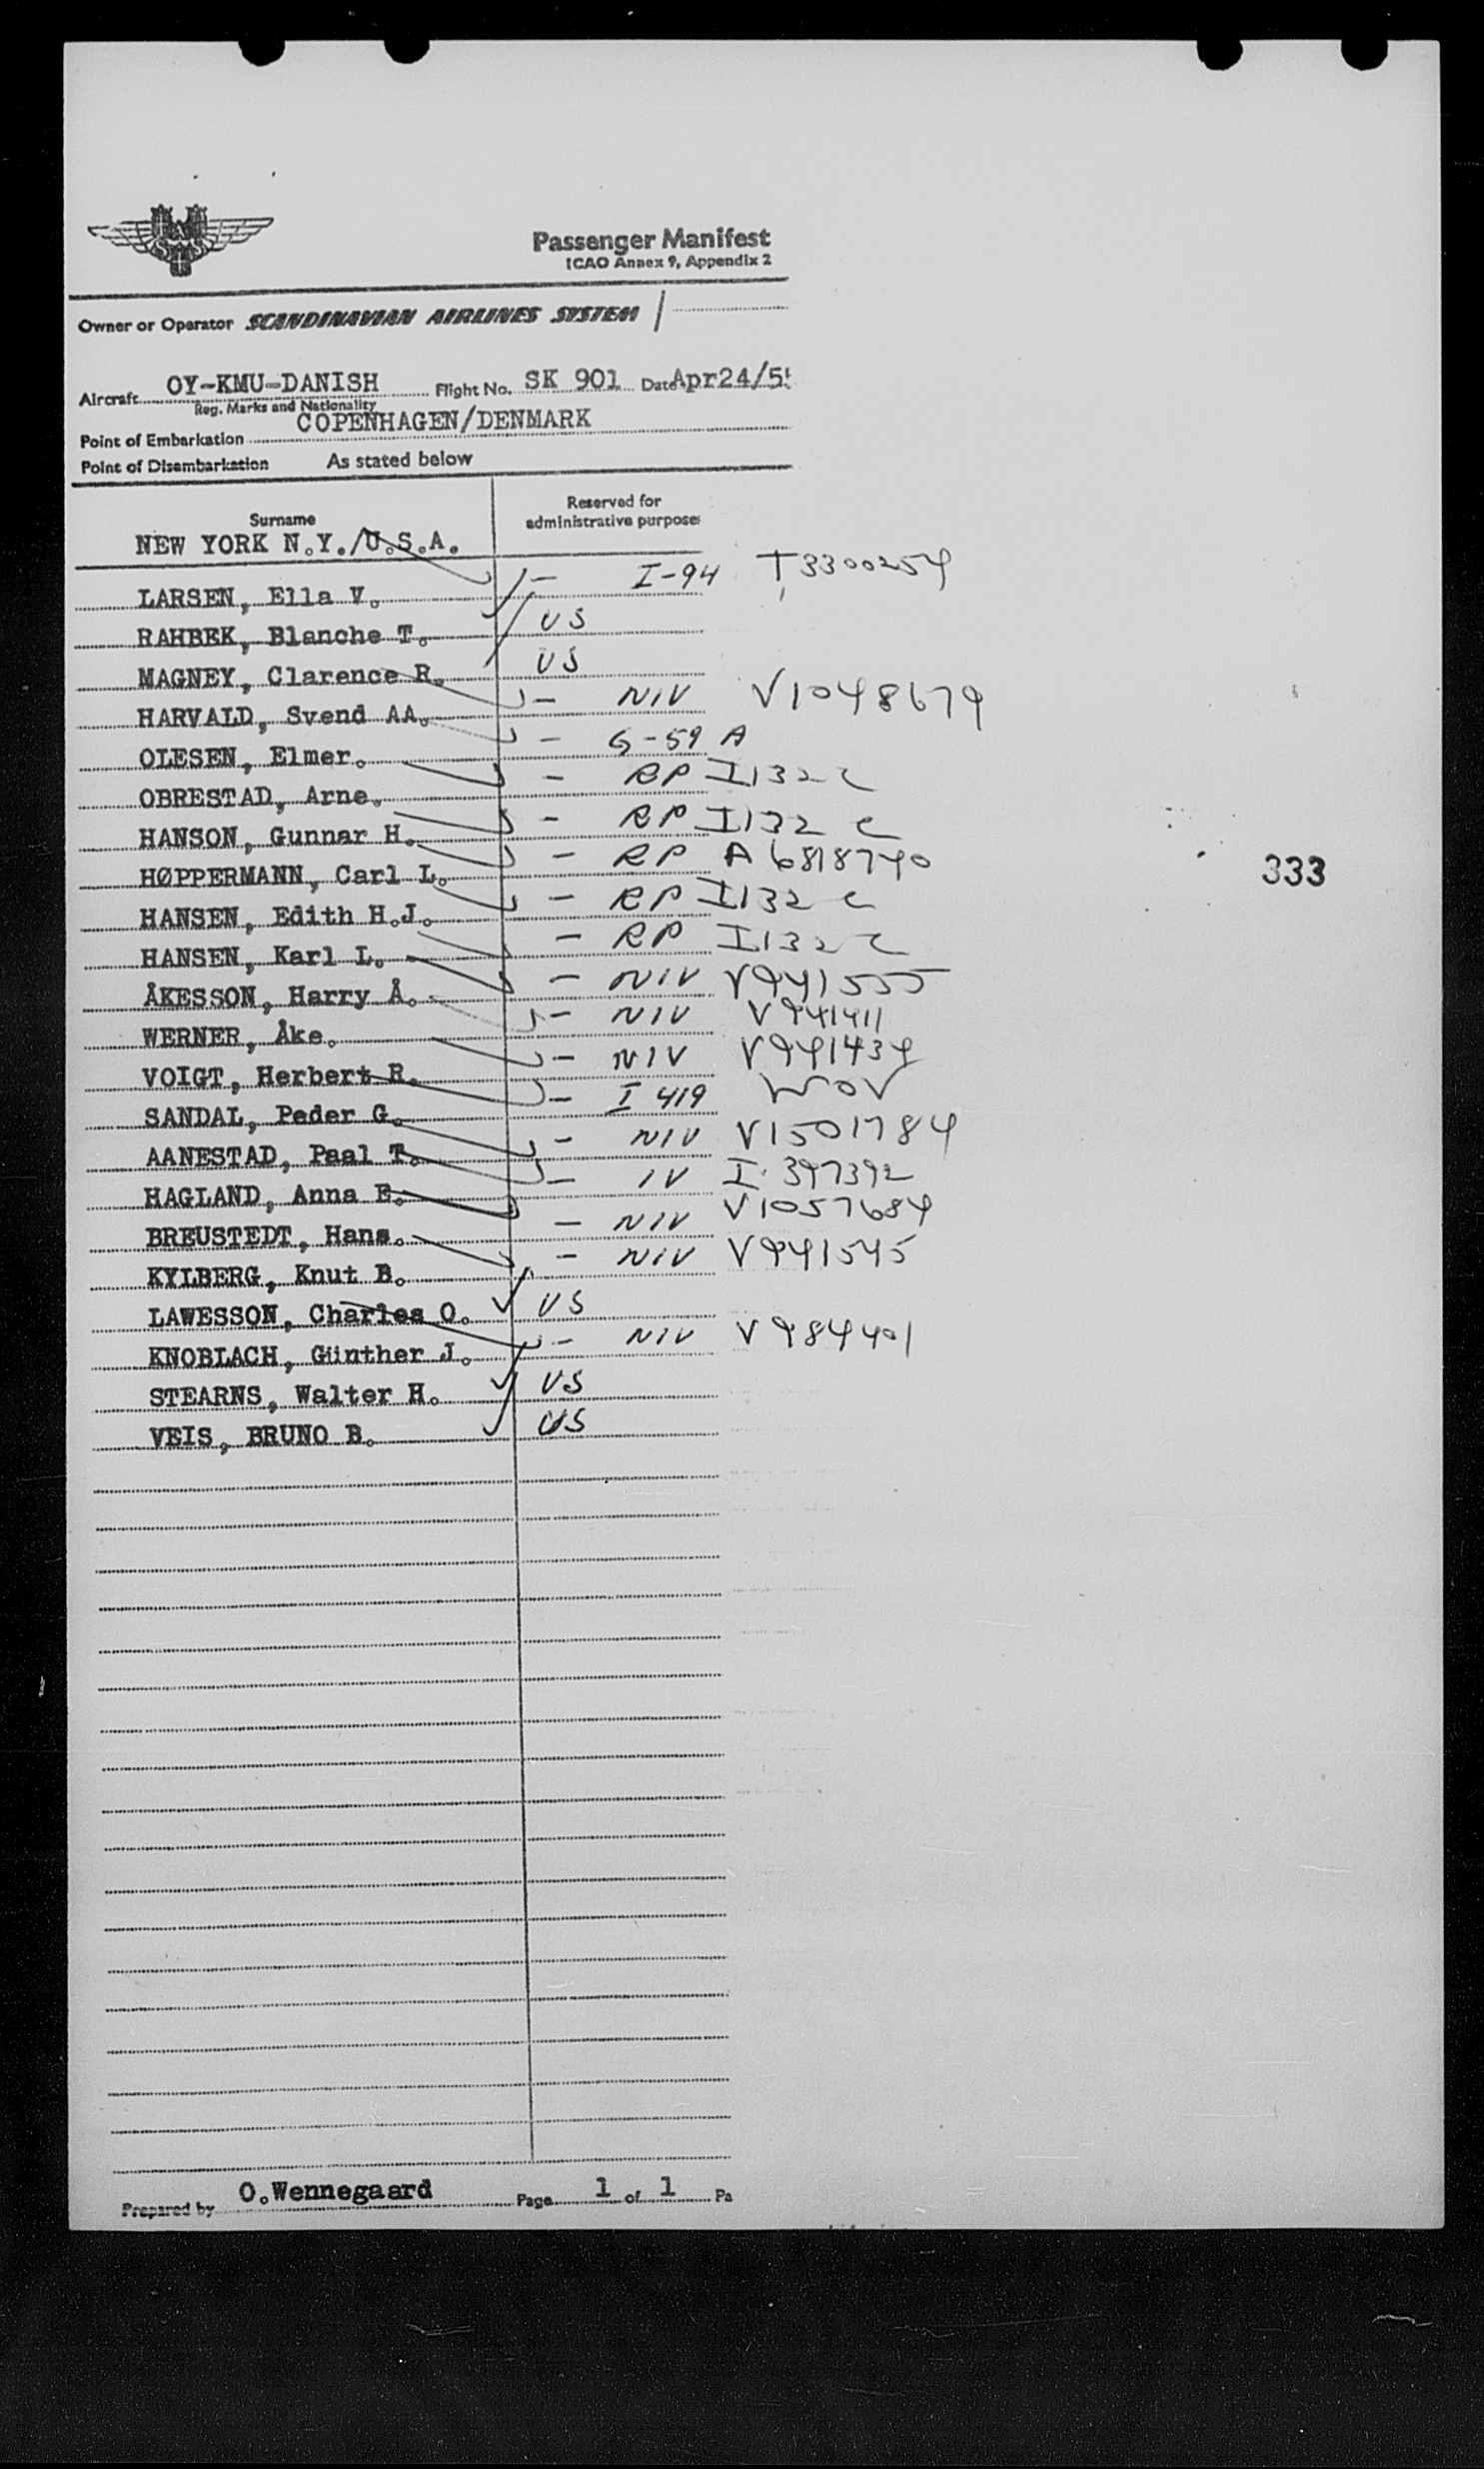 SAS
Passenger Manifest
ICAO Annex 9, Appendix 2
Owner or Operator SCANDINAVIAN AIRLINES SYSTEM
Aircraft OY-KMU-DANISH Flight No. SK 901 Date Apr24/5
Reg. Marks and Nationality
Point of Embarkation COPENHAGEN/DENMARK
Point of Disembarkation As stated below
Surname Reserved for administrative purpose
NEW YORK N.Y./U.S.A.
LARSEN, Ella V. - I-94 T3300254
RAHBEK, Blanche T. US
MAGNEY, Clarence R. US
HARVALD, Svend AA. - NIV V1048679
OLESEN, Elmer. - G-59 A
OBRESTAD, Arne. - RP I132C
HANSON, Gunnar H. - RP I132 C
HØPPERMANN, Carl L. - RP A6818740
HANSEN, Edith H.J. - RP I132 C
HANSEN, Karl L. - RP I132C
ÅKESSON, Harry Å. - NIV V941555
WERNER, Åke. - NIV V941411
VOIGT, Herbert R. - NIV V941434
SANDAL, Peder G. - I 419 WOV
AANESTAD, Paal T. - NIV V1501784
HAGLAND, Anna E. - IV I. 397392
BREUSTEDT, Hans. - NIV V1057684
KYLBERG, Knut B. - NIV V941545
LAWESSON, Charles O. US
KNOBLACH, Günther J. - NIV V984401
STEARNS, Walter H. US
VEIS, BRUNO B. US
333
Prepared by O.Wennegaard Page 1 of 1 Pa